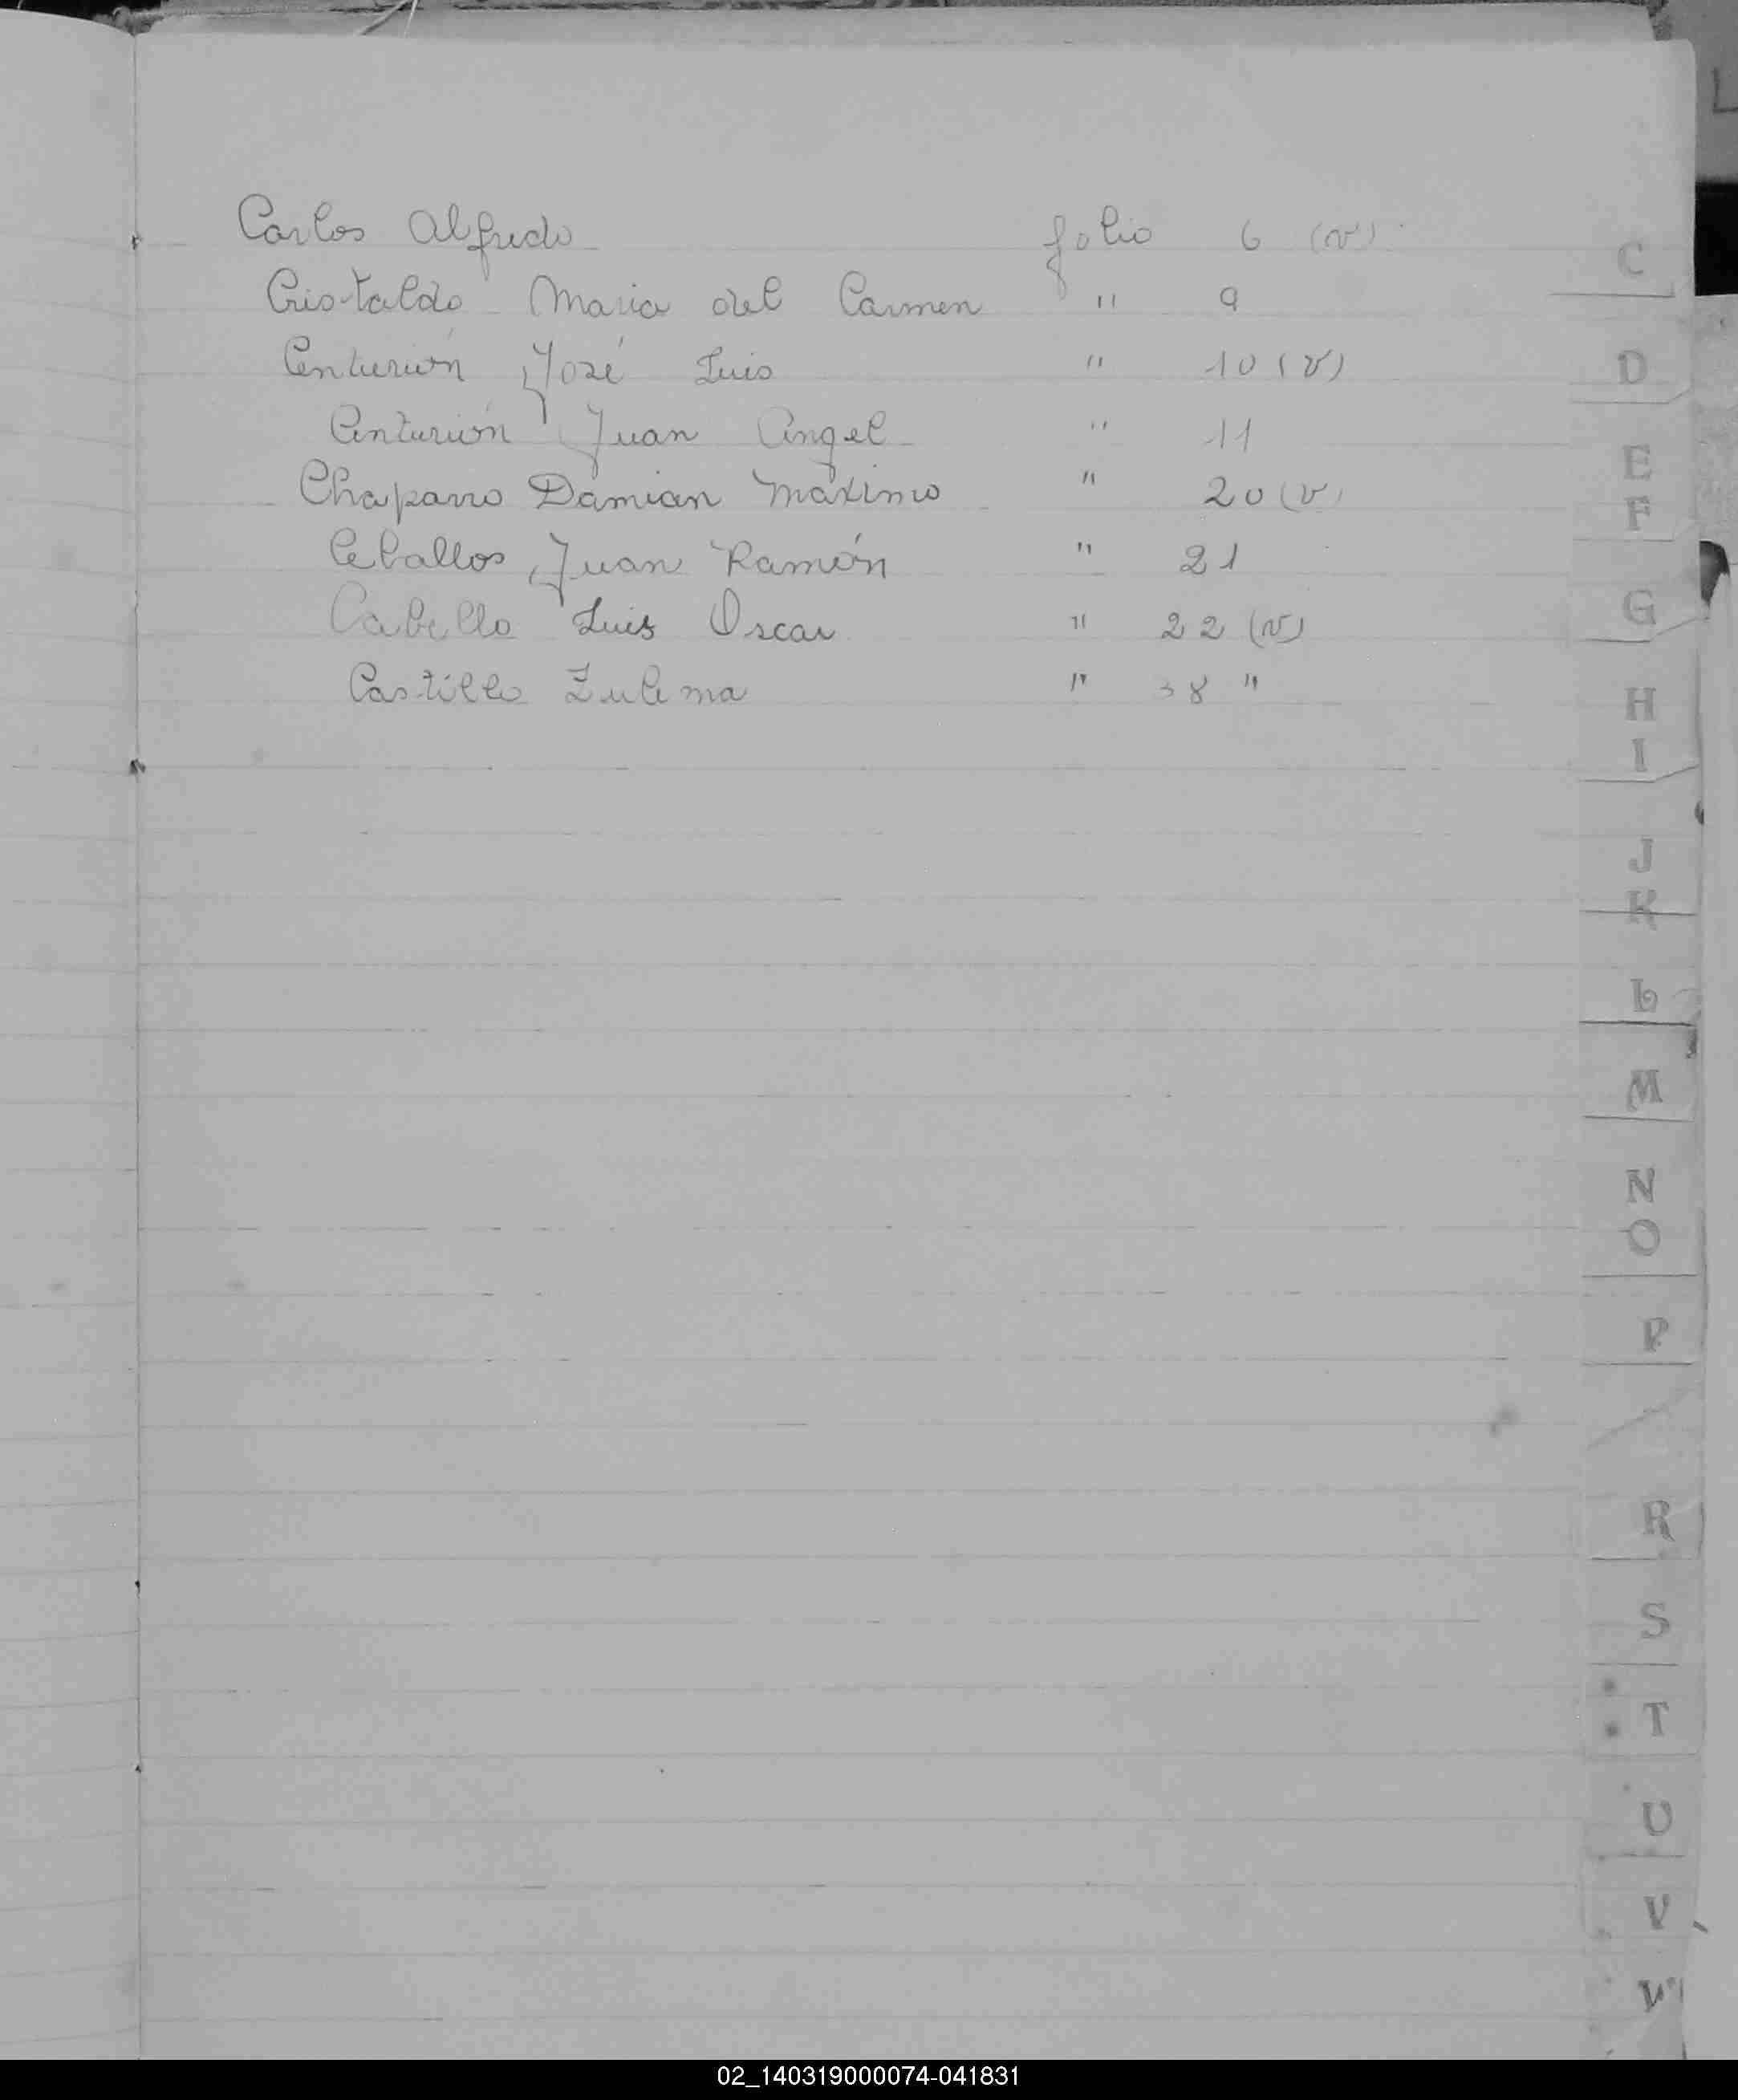 Carlos Alfredo folio 6 (v)
Cristaldo Maria del Carmen " 9
Centurión José Luis " 10 (v)
Centurión Juan Angel " 11
Chaparro Damian Máximo " 20 (v)
Ceballos Juan Ramón " 21
Cabello Luis Oscar " 22 (v)
Castillo Zulema " 38 "
C
D
E
F
G
H
I
J
K
L
M
N
O
P
R
S
T
U
V
W
02_140319000074-041831